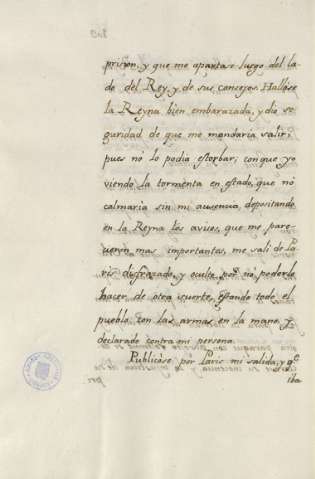 prision, y que me apartase luego del la-
do del Rey, y de sus consejos. Hallose
la Reyna bien embarazada, y dio se
guridad de que me mandaria salir,
pues no lo podia estorbar; con que yo
viendo la tormenta en estado, que no
calmaria sin mi ausencia, depositando
en la Reyna los avisos, que me pare-
cieron mas importantes, me salí de Pa
ris disfrazado, y oculto, por no poderlo
hacer de otra suerte, estando todo el
pueblo con las armas en la mano, y
declarado contra mi persona.
Publicóse por Paris mi salida, y q.e
iba